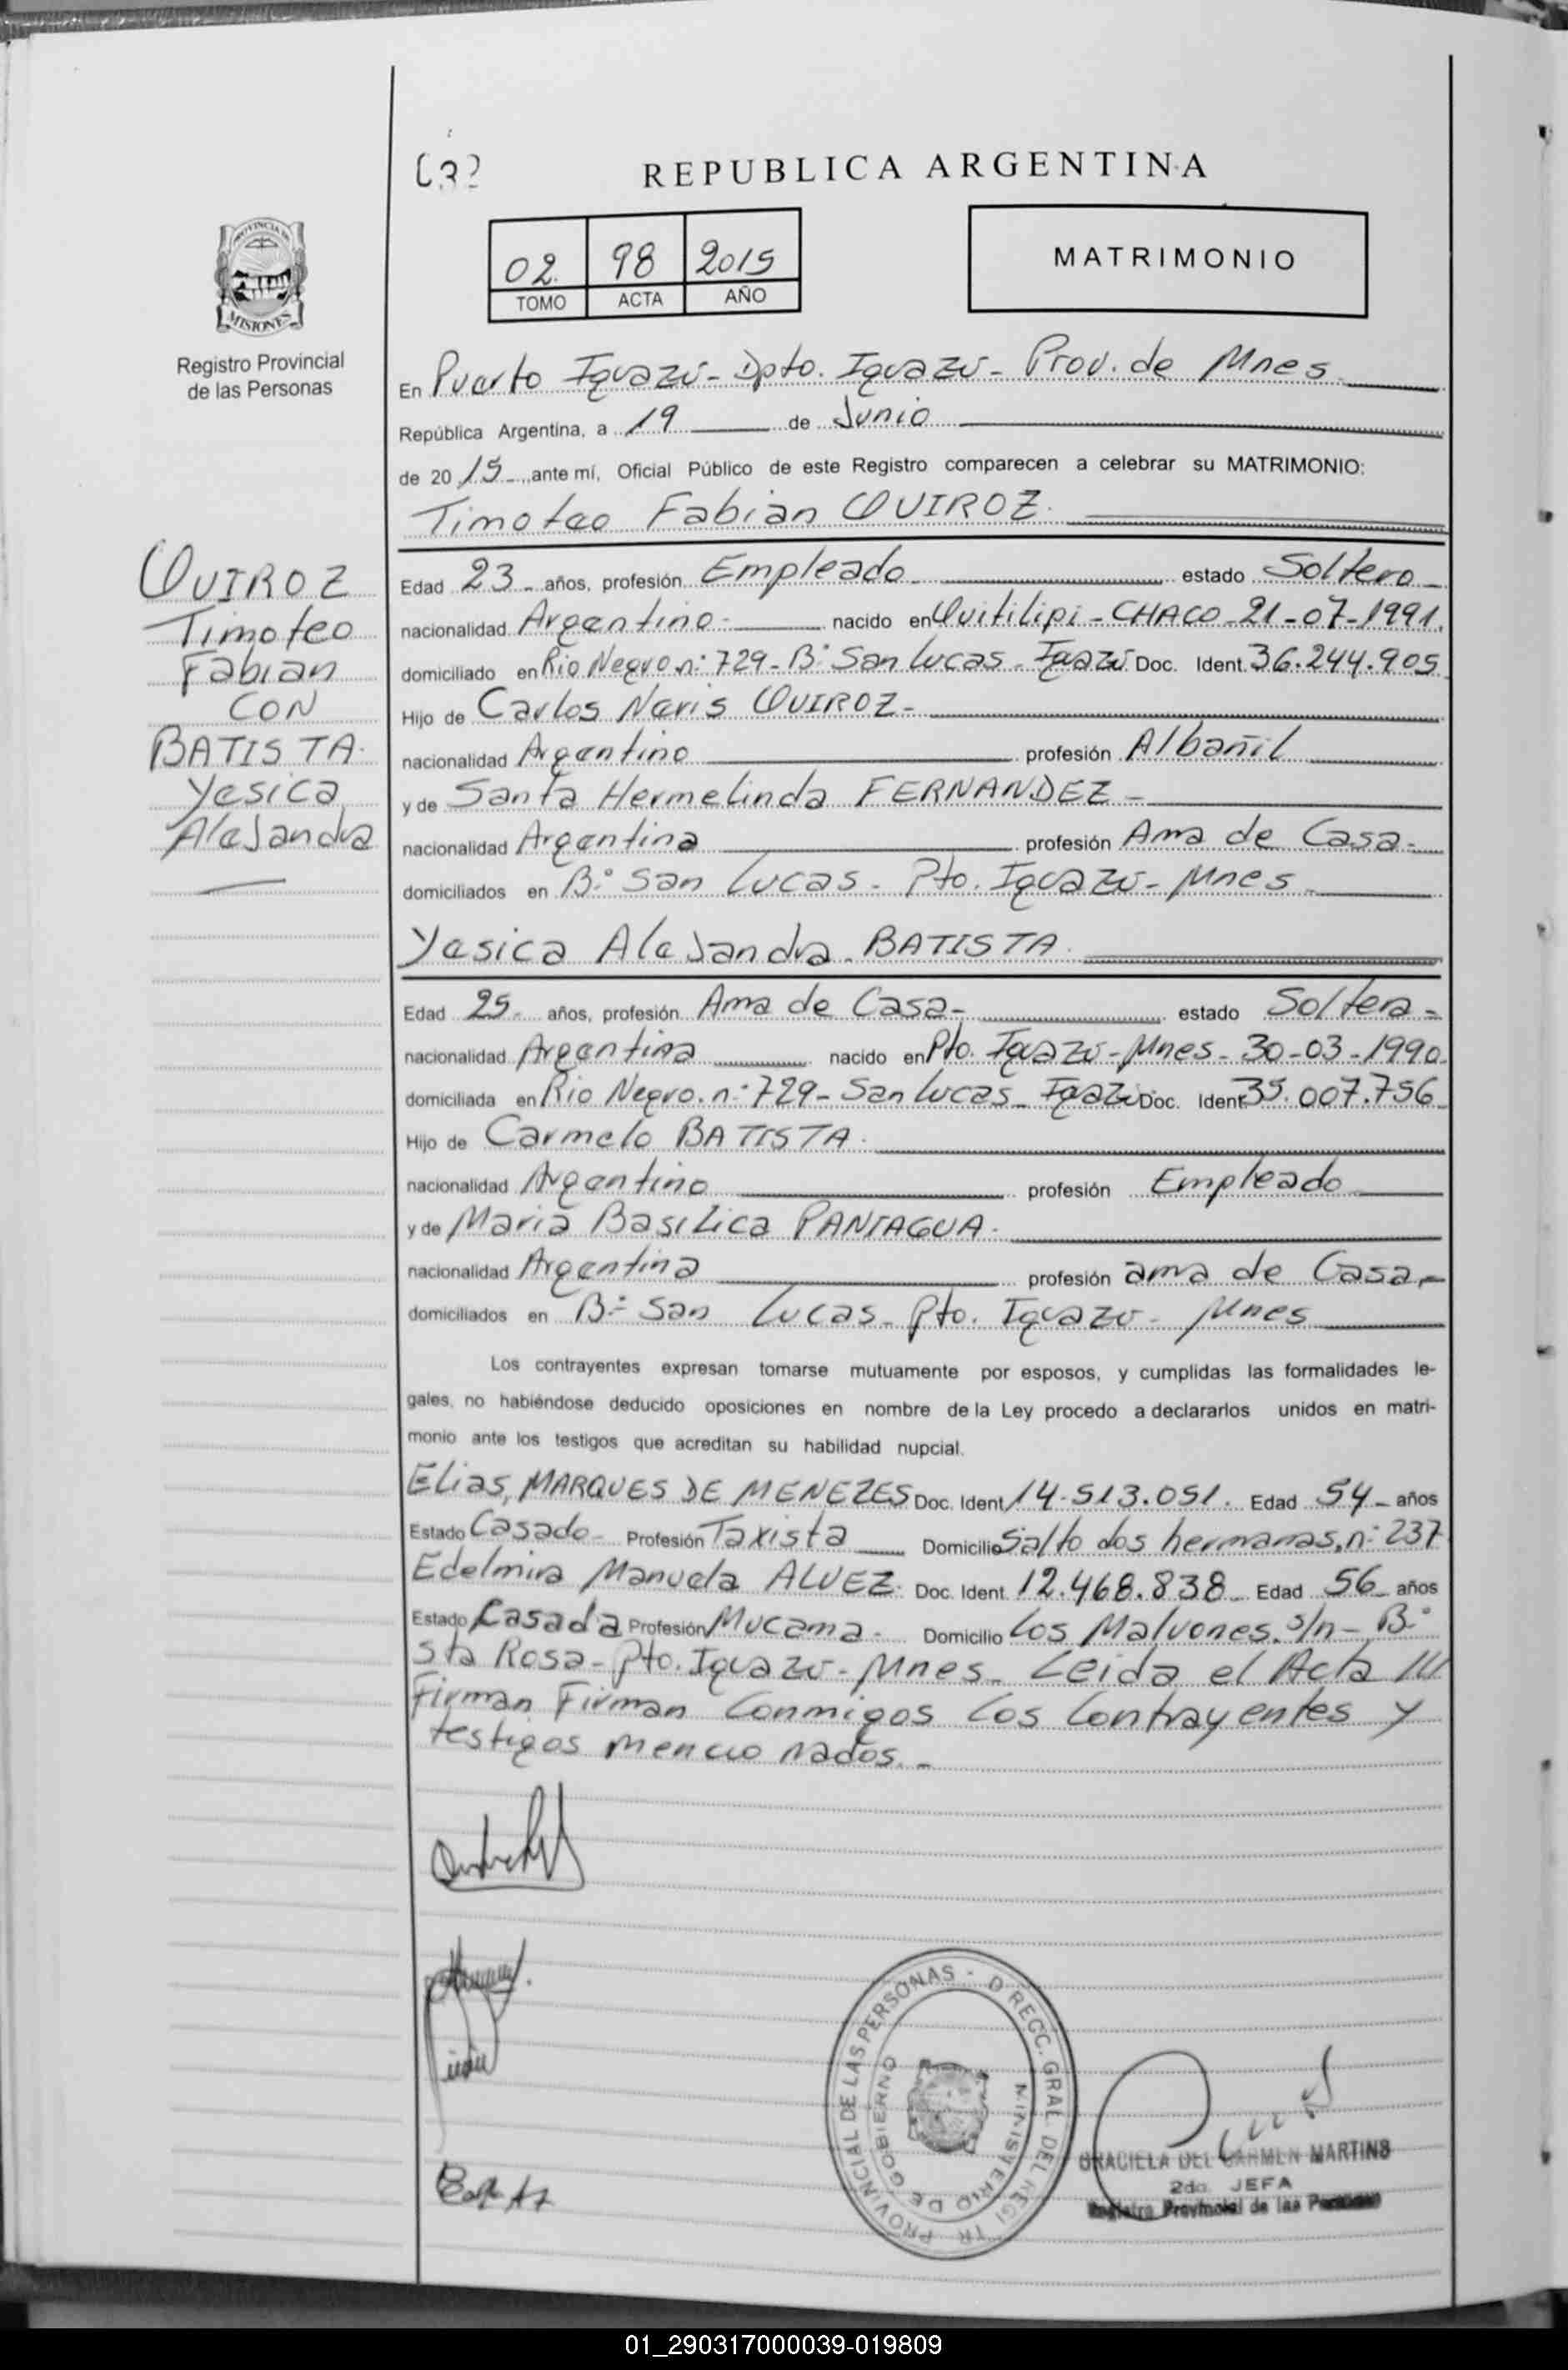 REPUBLICA ARGENTINA
02 98 2015
TOMO ACTA AÑO
MATRIMONIO
PROVINCIA DE
MISIONES
Registro Provincial
de las Personas
QUIROZ
Timoteo
Fabian
CON
BATISTA
Yesica
AleJandra
En Puerto Iguazú - Dpto. Iguazú - Prov. de Mnes
República Argentina, a 19 de Junio
de 20 15 ante mí, Oficial Público de este Registro comparecen a celebrar su MATRIMONIO:
Timoteo Fabian QUIROZ.
Edad 23 años, profesión Empleado estado Soltero
nacionalidad Argentino - nacido en Quitilipi - CHACO - 21-07-1991.
domiciliado en Rio Negro n: 729 - B: San Lucas - Iguazú Doc. Ident. 36.244.905
Hijo de Carlos Neris QUIROZ -
nacionalidad Argentino profesión Albañil
y de Santa Hermelinda FERNANDEZ -
nacionalidad Argentina profesión Ama de Casa -
domiciliados en B:° San Lucas - Pto. Iguazú - Mnes
Yesica AleJandra BATISTA.
Edad 25 años, profesión Ama de Casa - estado Soltera -
nacionalidad Argentina nacido en Pto. Iguazú - Mnes - 30-03-1990
domiciliada en Rio Negro. n: 729 - San Lucas - Iguazú Doc. Ident 35.007.756
Hijo de Carmelo BATISTA.
nacionalidad Argentino profesión Empleado
y de Maria Basilica PANIAGUA.
nacionalidad Argentina profesión ama de Casa -
domiciliados en B:- San Lucas - Pto. Iguazú - Mnes
Los contrayentes expresan tomarse mutuamente por esposos, y cumplidas las formalidades le-
gales, no habiéndose deducido oposiciones en nombre de la Ley procedo a declararlos unidos en matri-
monio ante los testigos que acreditan su habilidad nupcial.
Elias, MARQUES DE MENEZES Doc. Ident 14.513.051. Edad 54 - años
Estado Casado - Profesión Taxista Domicilio Salto dos hermanas, n: 237
Edelmira Manuela ALVEZ. Doc. Ident. 12.468.838 Edad 56 años
Estado Casada Profesión Mucama - Domicilio Los Malvones. s/n - B:°
Sta Rosa - Pto. Iguazú - Mnes - Leida el Acta ///
Firman Firman Conmigos los Contrayentes y
testigos mencionados. -
PROVINCIAL DE LAS PERSONAS - DRECC. GRAL. DEL REGI TR
MINISTERIO DE GOBIERNO
GRACIELA DEL CARMEN MARTINS
2da JEFA
Registro Provincial de las Personas
01_290317000039-019809